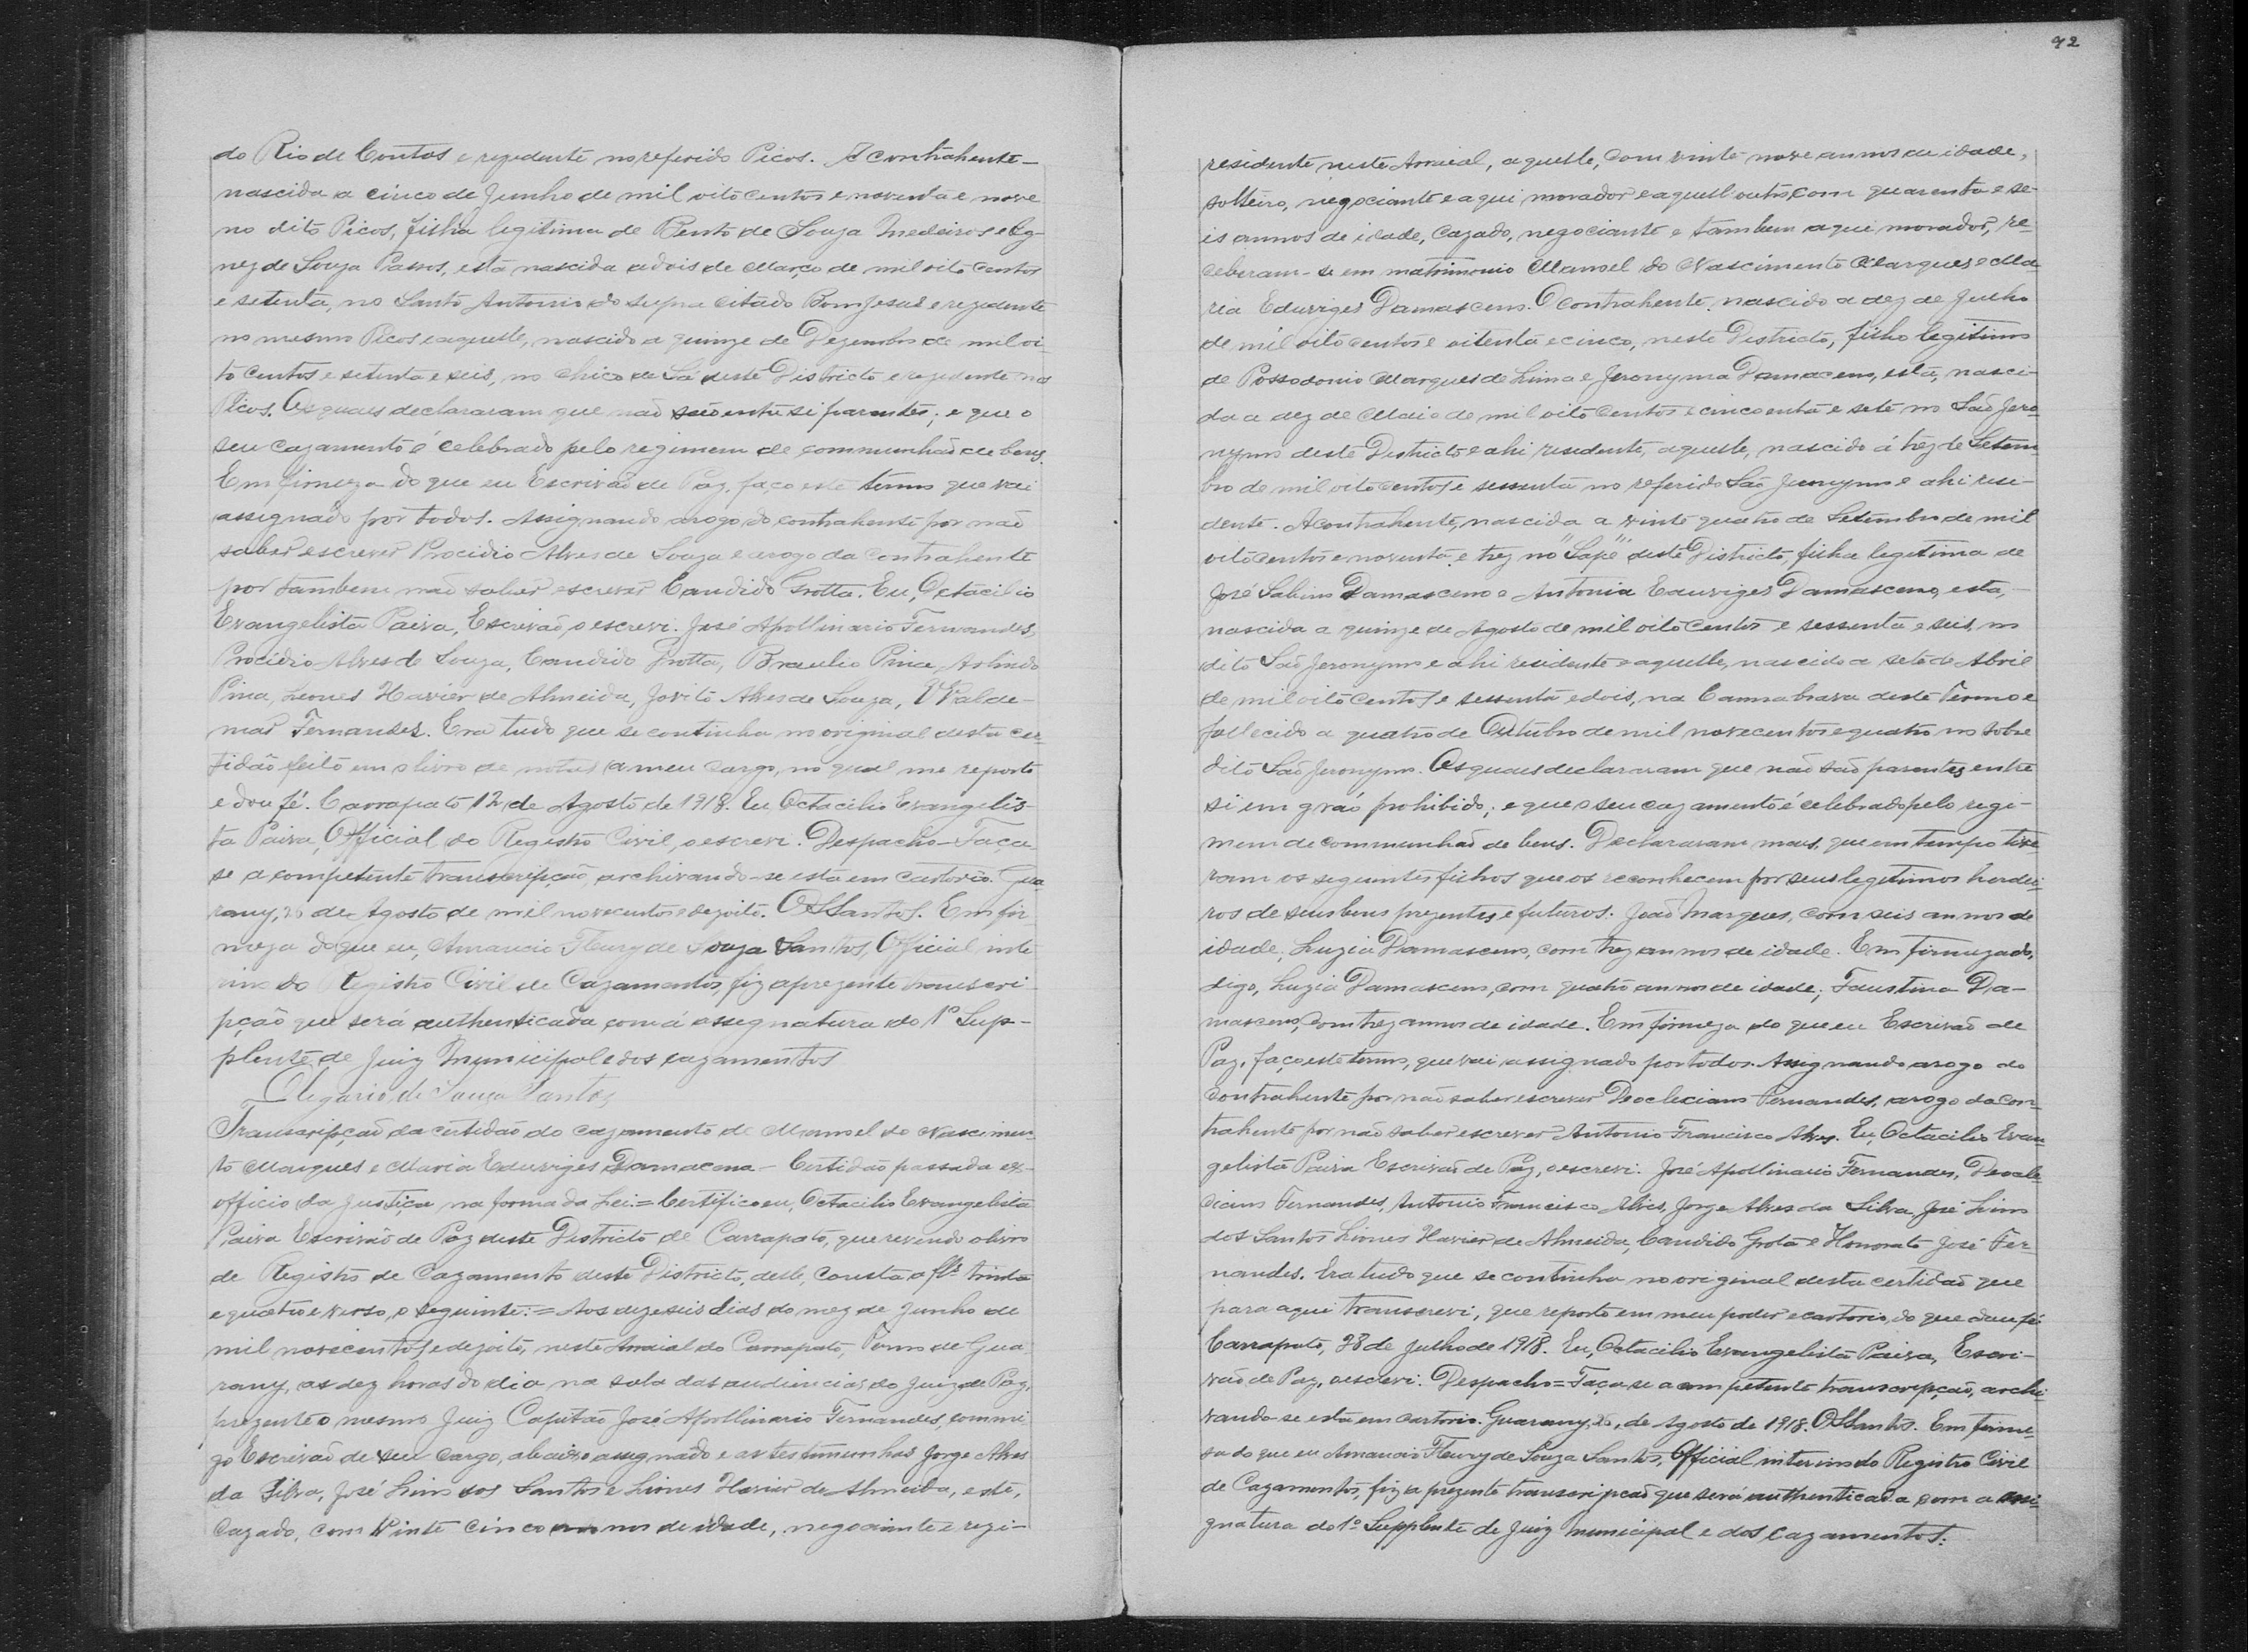 do Rio de Contas e rezedente no referido Picos. A contrahente -
nascida a cinco de Junho de mil oito centos e noventa e nove
no dito Picos, filha legitima de Bento de Souza Medeiros e Ig-
nez de Souza Passos, esta nascida a dois de Março de mil oito centos
e setenta, no Santo Antonio do supra citado Bom Jesus e rezedente
no mesmo Picos e aquelle, nascido a quinze de Dezembro de mil oi-
to centos e setenta e seis, no Chico de Sá deste Districto e rezedente nos
Picos. Os quaes declararam que não são entre si parentes; e que o
seu cazamento é celebrado pelo regimem de communhão de bens.
Em firmeza do que eu Escrivão de Paz, faço este termo que vai
assignado por todos. Assignando arogo do contrahente por não
saber escrever Procidio Alves de Souza e arogo da contrahente
por tambem não saber escrever Candido Grotta. Eu, Octacilio
Evangelista Paiva, Escrivão, o escrevi. José Apollinario Fernandes,
Procidio Alves de Souza, Candido Grotta, Braulio Pina, Aslindo
Pina, Leones Xavier de Almeida, Jovito Alves de Souza, Walde-
mar Fernandes. Era tudo que se continha no original desta cer-
tidão feito em o livro de notas a meu cargo, no qual me reporto
e dou fé. Carrapato 12 de Agosto de 1918. Eu Octacilio Evangelis-
ta Paiva, Official do Registro Civil, o escrevi. Despacho - Faça
se a competente transcripção, archivando-se esta em cartorio. Gua
rany, 26 de Agosto de mil novecentos e dezoito. OSSantos. Em fir-
meza do que eu, Amancio Fleury de Souza Santos, Official inte
rino do Registro Civil de Cazamentos, fiz a prezente transcri
pção que será authenticada com á assegnatura do 1º Sup-
plente de Juiz Municipal e dos cazamentos
Olegario de Souza Santos
Transcripção da certidão do cazamento de Manoel do Nascimen-
to Marques e Maria Eduviges Damacena - Certidão passada ex-
officio da Justiça na forma da Lei. = Certifico eu, Octacilio Evangelista
Paiva Escrivão de Paz deste Districto de Carrapato, que revendo o livro
de Registro de Cazamento deste Districto, delle, consta a fls trinta
e quatro e verso, o seguinte: = Aos dezeseis dias do mez de Junho de
mil novecentos e dezoito, neste Arraial do Carrapato, Termo de Gua
rany, as dez horas do dia na sala das audiencias do Juiz de Paz,
prezente o mesmo Juiz Capitão José Apollinario Fernandes, commi
go Escrivão de seu cargo, abaixo assegnado e as testemunhas Jorge Alves
da Silva, José Lino dos Santos e Liones Xavier de Almeida, este,
cazado, com vinte cinco annos de idade, negociante e rezi-
92
residente neste Arraial, aquelle, com vinte nove annos de idade,
solteiro, negociante e aqui morador e aquell outro, com quarenta e se-
is annos de idade, cazado, negociante e tambem aqui morador, re-
ceberam-se em matrimonio Manoel do Nascimento Marques e Ma
ria Eduviges Damasceno. O contrahente, nascido a dez de Julho
de mil oito centos e oitenta e cinco, neste Districto, filho legitimo
de Possodonio Marques de Lima e Jeronyma Damaceno, esta, nasci-
da a dez de Maio de mil oito centos e cincoenta e sete no São Jero-
nymo deste Districto e ahi residente, aquelle, nascido á trez de Setem
bro de mil oito centos e sessenta no referido São Jeronymo e ahi resi-
dente. A contrahente, nascida a vinte quatro de Setembro de mil
oito centos e noventa e trez no "Sapé" deste Districto, filha legitima de
José Sabino Damasceno e Antonia Eduviges Damasceno, esta, -
nascida a quinze de Agosto de mil oito centos e sessenta e seis, no
dito São Jeronymo e ahi residente e aquelle, nascido a sete de Abril
de mil oito centos e sessenta e dois, na Cannabrava deste Termo e
fallecido a quatro de Outubro de mil novecentos e quatro no sobre
dito São Jeronymo. Os quaes declararam que não são parentes entre
si em gráo prohibido; e que o seu cazamento é celebrado pelo regi-
mem de communhão de bens. Declararam mais, que em tempo tive-
ram os seguintes filhos que os reconhecem por seus legitimos herdei-
ros de seus bens prezentes e futuros. João Marques, com seis annos de
idade, Luzia Damasceno, com trez annos de idade. Em firmeza do,
digo, Luzia Damasceno, com quatro annos de idade; Faustina Da-
masceno, com trez annos de idade. Em firmeza do que eu Escrivão de
Paz, faço este termo, que vai assignado por todos. Assignando arogo do
contrahente por não saber escrever Deocleciano Fernandes, arogo da con-
trahente por não saber escrever Antonio Francisco Alves. Eu, Octacilio Evan
gelista Paiva Escrivão de Paz, o escrevi. José Apollinario Fernandes, Deocle-
ciano Fernandes, Antonio Francisco Alves, Jorge Alves da Silva, José Lino
dos Santos Liones Xavier de Almeida, Candido Grota e Honorato José Fer-
nandes. Era tudo que se continha no original desta certidão que
para aqui transcrevi, que reporto em meu poder e cartorio, do que dou fé.
Carrapato, 28 de Julho de 1918. Eu, Octacilio Evangelista Paiva, Escri-
vão de Paz, o escrevi. Despacho = Faça se a competente transcripção, archi-
vando-se esta em cartorio. Guarany, 26, de Agosto de 1918. OSSantos. Em firme-
sa do que eu Amancio Fleury de Souza Santos, Official interino do Registro Civil
de Cazamentos, fiz a prezente transcripcão que será authenticada com a assi-
gnatura do 1º Supplente de Juiz Municipal e dos cazamentos: